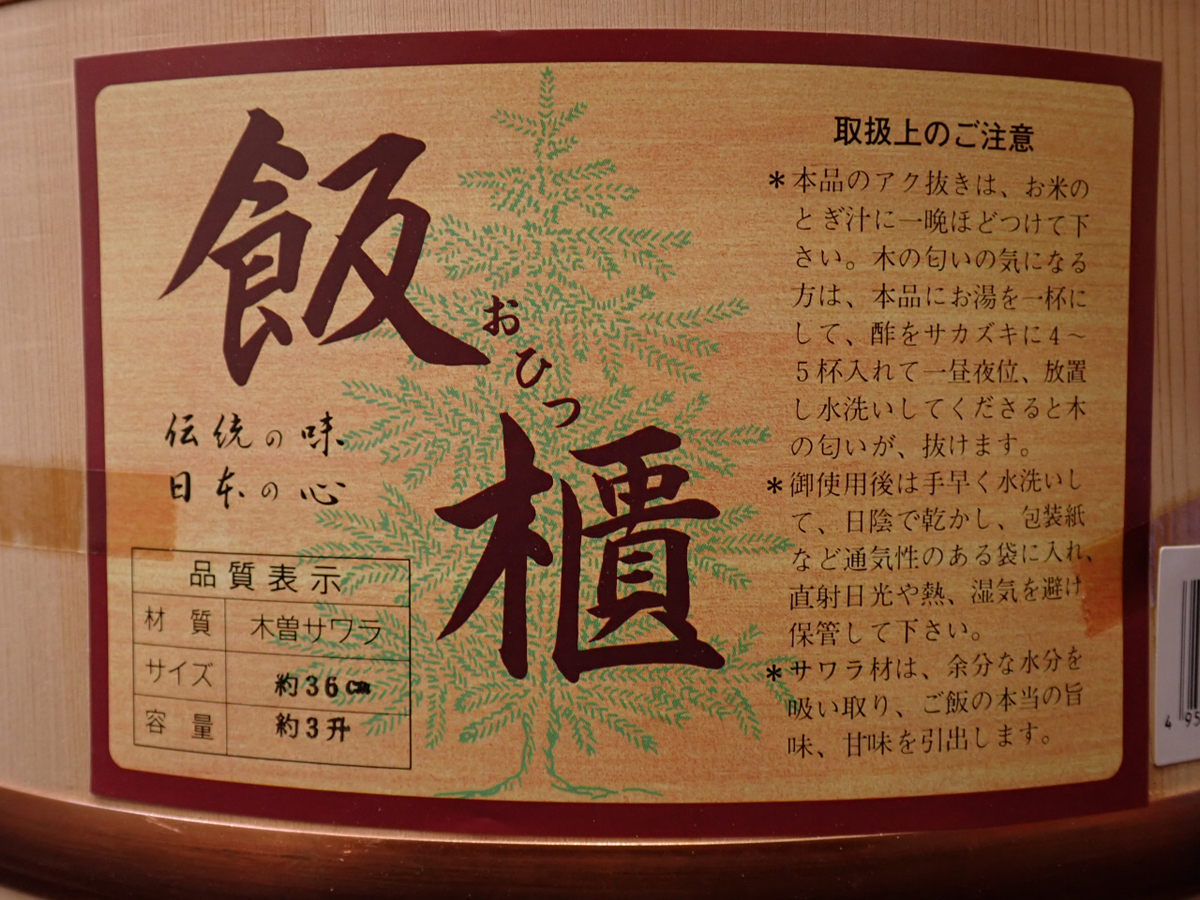 飯櫃
おひつ
伝統の味
日本の心
品質表示
材質 木曽サワラ
サイズ 約36㎝
容量 約3升
取扱上のご注意
＊本品のアク抜きは、お米の
とぎ汁に一晩ほどつけて下
さい。木の匂いの気になる
方は、本品にお湯を一杯に
して、酢をサカズキに4～
5杯入れて一昼夜位、放置
し水洗いしてくださると木
の匂いが、抜けます。
＊御使用後は手早く水洗いし
て、日陰で乾かし、包装紙
など通気性のある袋に入れ、
直射日光や熱、湿気を避け
保管して下さい。
＊サワラ材は、余分な水分を
吸い取り、ご飯の本当の旨
味、甘味を引出します。
4 95